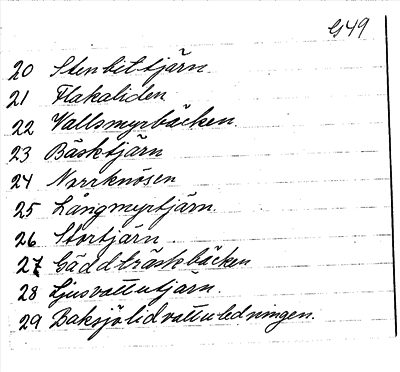 G49
20 Stenbittjärn
21 Flakaliden
22 Vallsmyrbäcken
23 Bäsktjärn
24 Norrknösen
25 Långmyrtjärn.
26 Stortjärn
27 Gäddträskbäcken
28 Ljusvattutjärn.
29 Baksjölidvattuledningen.